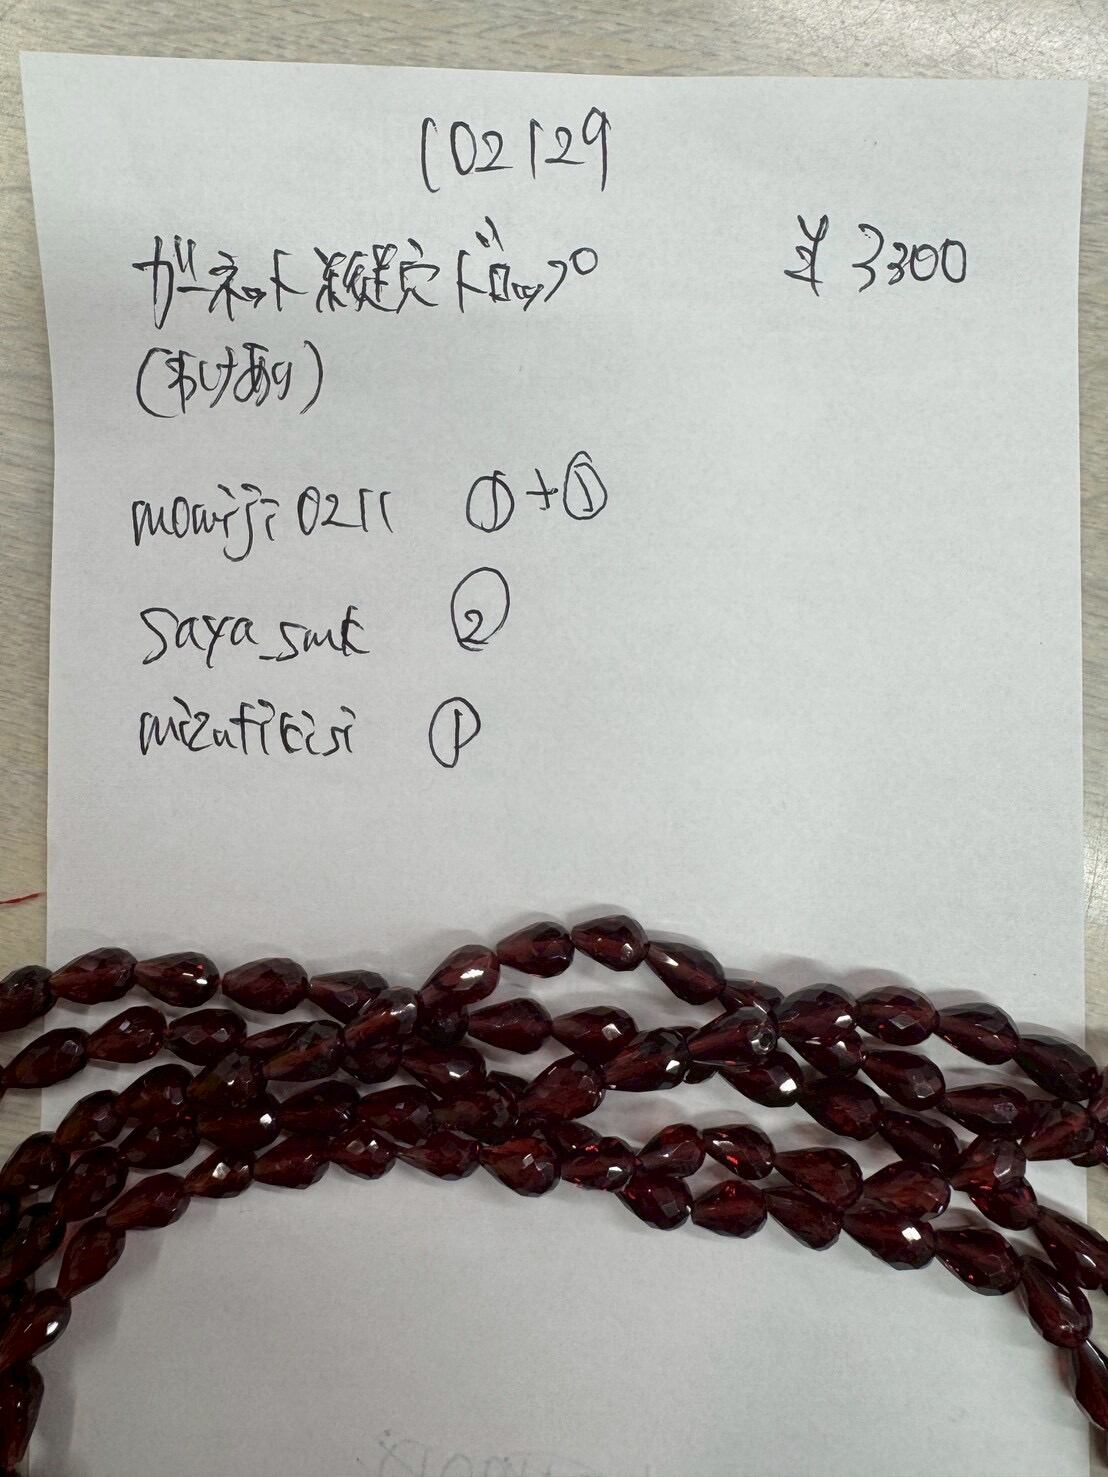 102129
ガーネット縦穴ドロップ ¥3300
(わけあり)
momiji0211 ①+①
saya_smk ②
mizufikisi ①